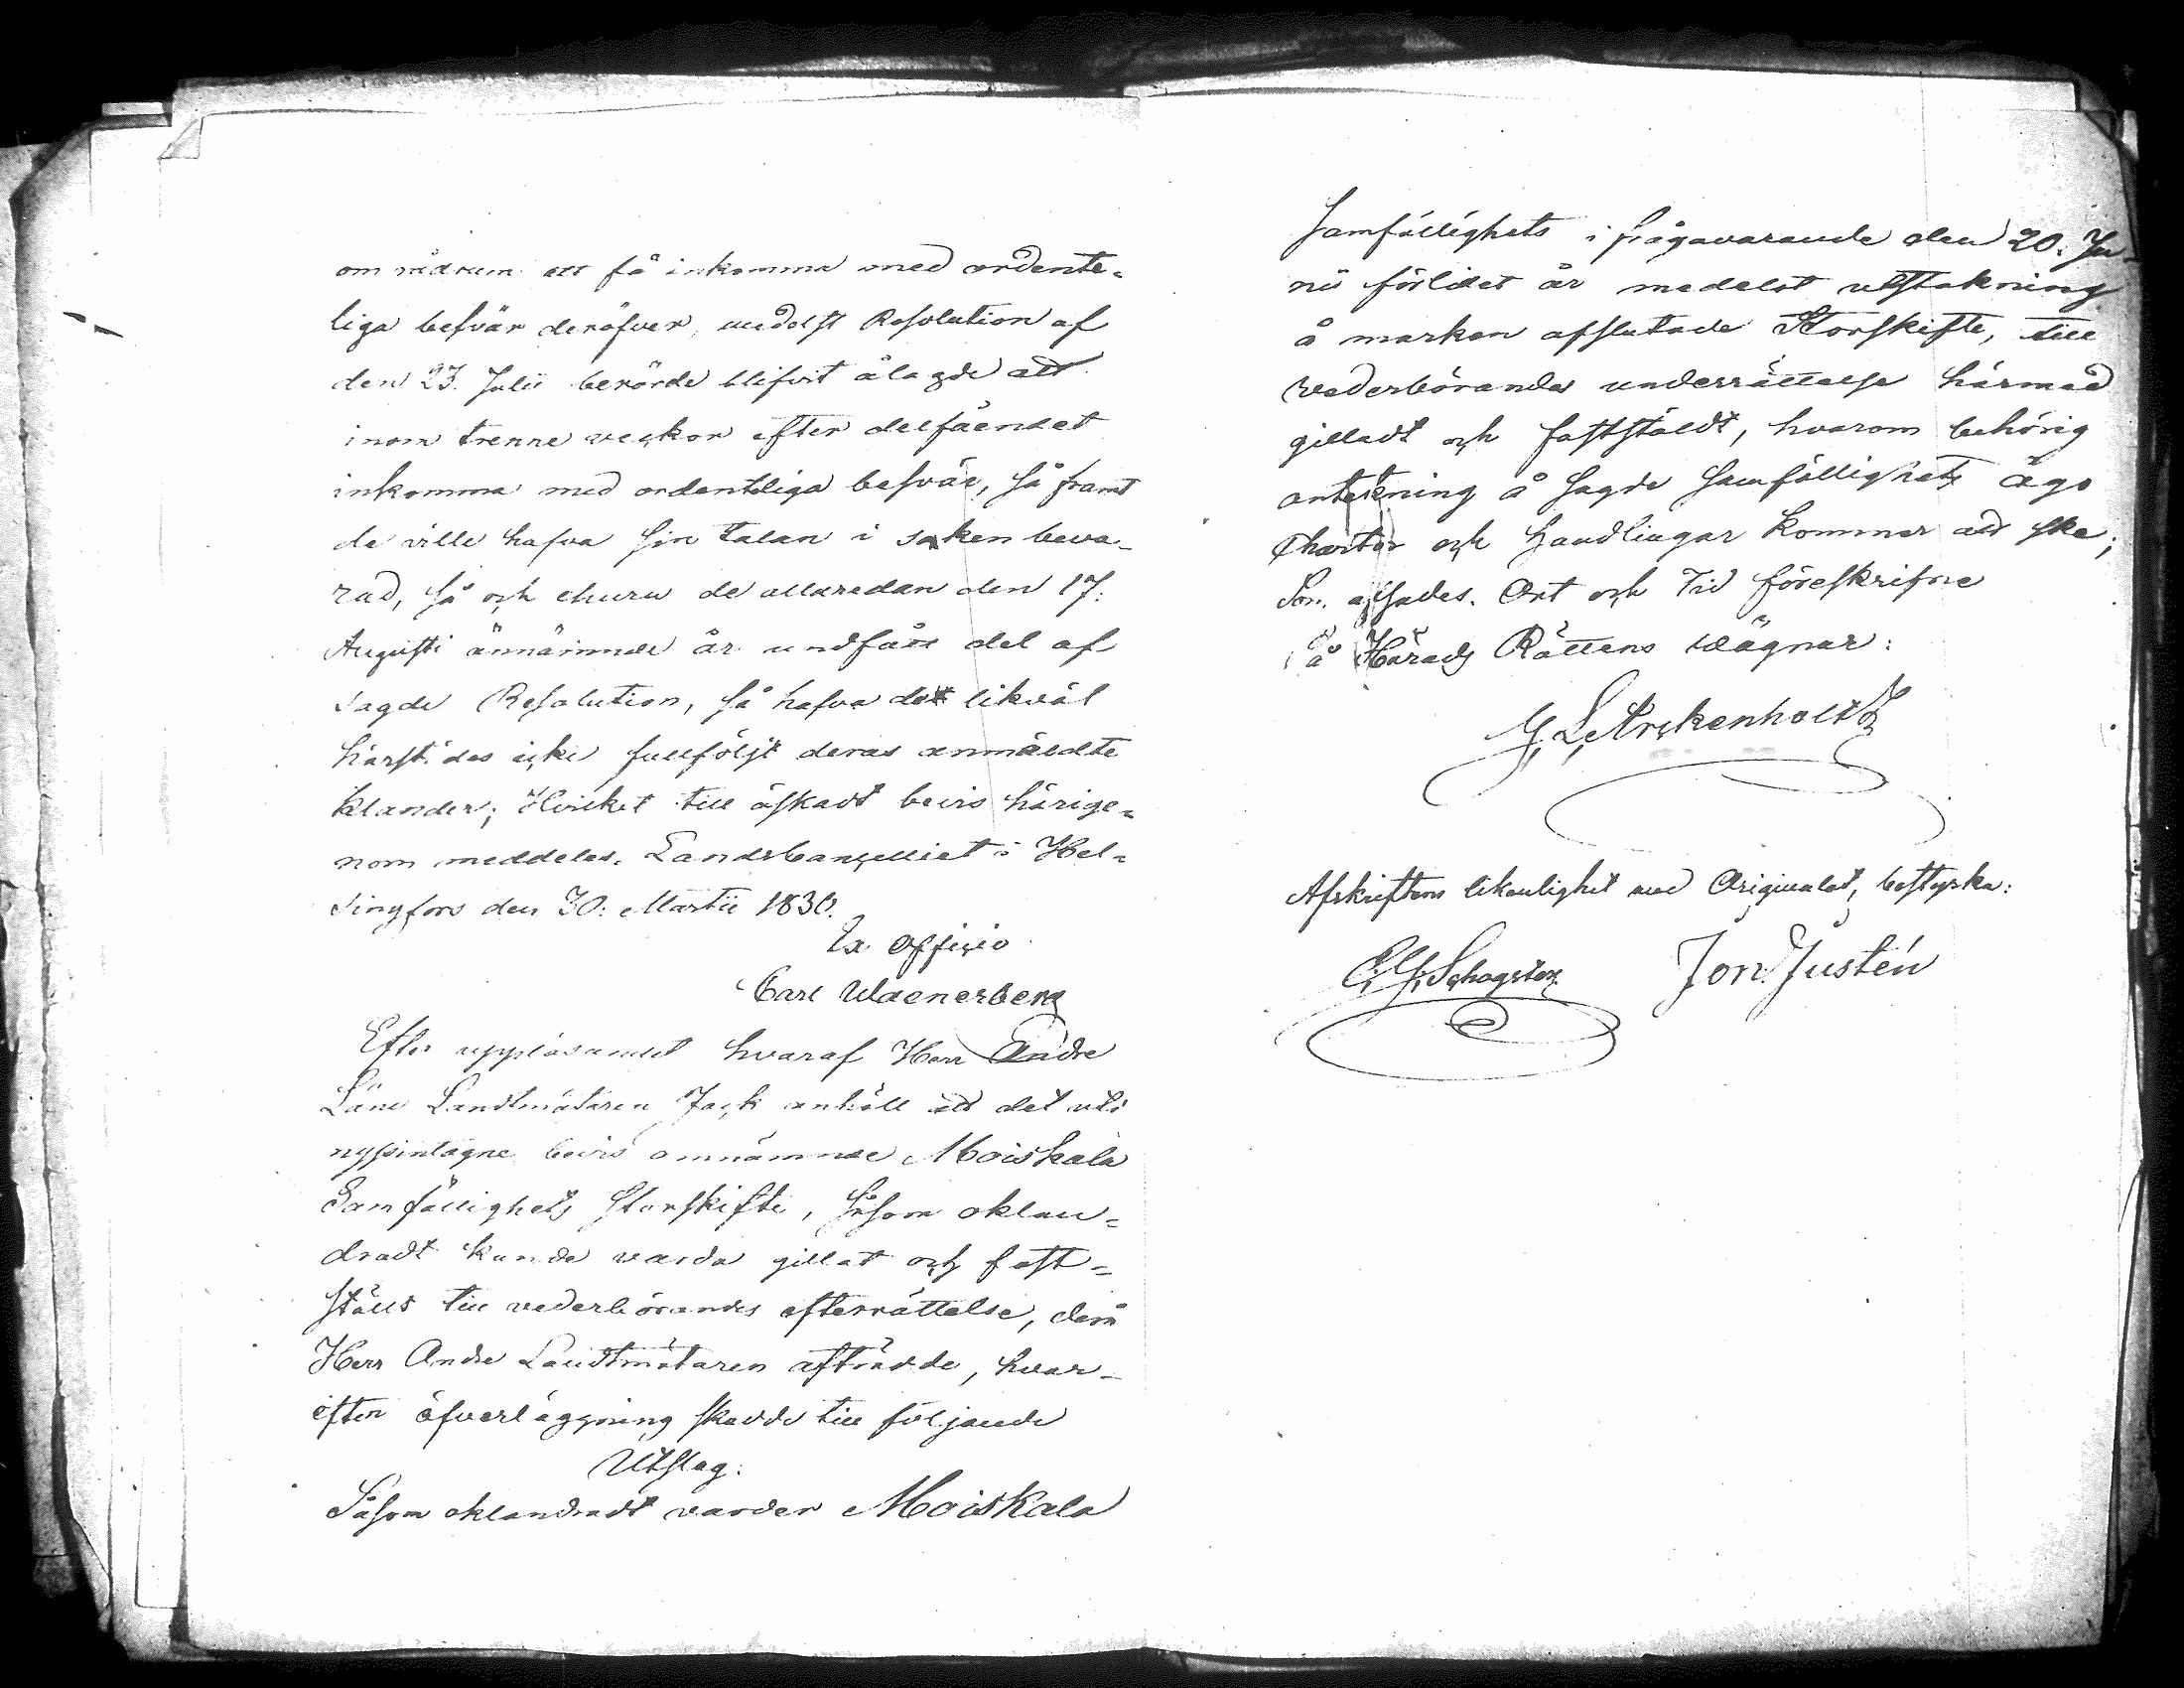 om rådrum att få inkomma med ordente-
liga besvär deröfver, medelst Resolution af
den 23. Julii berörde blifvit ålagde att
inom trenne veckor efter delfåendet
inkomma med ordentliga besvär, så framt
de ville hafva sin talan i saken beva-
rad, så och ehuru de allaredan den 17.
Augusti ännämnde år undfått del af
sagde Resolution, så hafva de likväl
härstädes icke fullföljt deras anmäldte
klander; Hvilket till äskadt bevis härige-
nom meddeles. Landscancelliet i Hel-
singfors den 30. Martii 1830.
Ex officio
Carl Waenerberg
Efter uppläsandet hvaraf Herr Andre
Läne Landtmätaren Jack anhöll att det uti
nyssintagne bevis omnämnde Moiskala
Samfällighets Storskifte, såsom oklan-
dradt kunde varda gillat och fast-
stäldt till vederbörandes efterrättelse, dem
Herr Andre Landtmätaren afträdde, hvar-
efter öfverläggning skedde till följande
Utslag:
Såsom oklandradt varder Moiskala
Samfällighets i frågavarande den 20. Ju-
nii förlidet år medelst utstakning
å marken afslutade Storskifte, till
vederbörandes underrättelse härmed
gilladt och faststäldt, hvarom behörig
anteckning å sagde Samfällighets ägo
Chartor och handlingar kommer att ske;
Som afsades. Ort och Tid föreskrifne
å Härads Rättens wägnar:
G. L. Arckenholtz
Afskriftens likenlighet med Originalet, bestyrka:
Jon. Justén